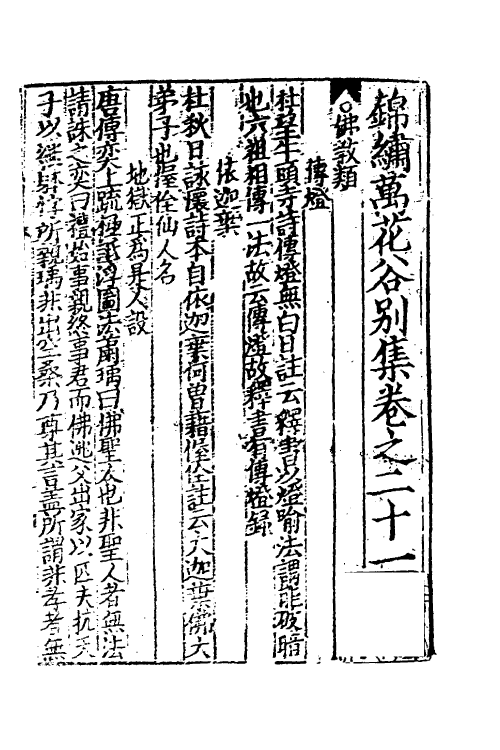 錦繡萬花谷別集卷之二十一
○佛教類
傳燈
杜望牛頭寺詩傳燈無白日註云釋書以燈喻法謂能破暗
也六祖相傳一法故云傳燈故釋書有傳燈錄
依迦葉
杜秋日詠懷詩本自依迦葉何曾藉偓佺註云大迦葉佛大
弟子也偓佺仙人名
地獄正為是人設
唐傅奕上疏極詆浮圖法蕭瑀曰佛聖人也非聖人者無法
請誅之奕曰禮始事親終事君而佛逃父出家以匹夫抗天
子以繼體悖所親瑀非出空桑乃尊其言盖所謂非孝者無